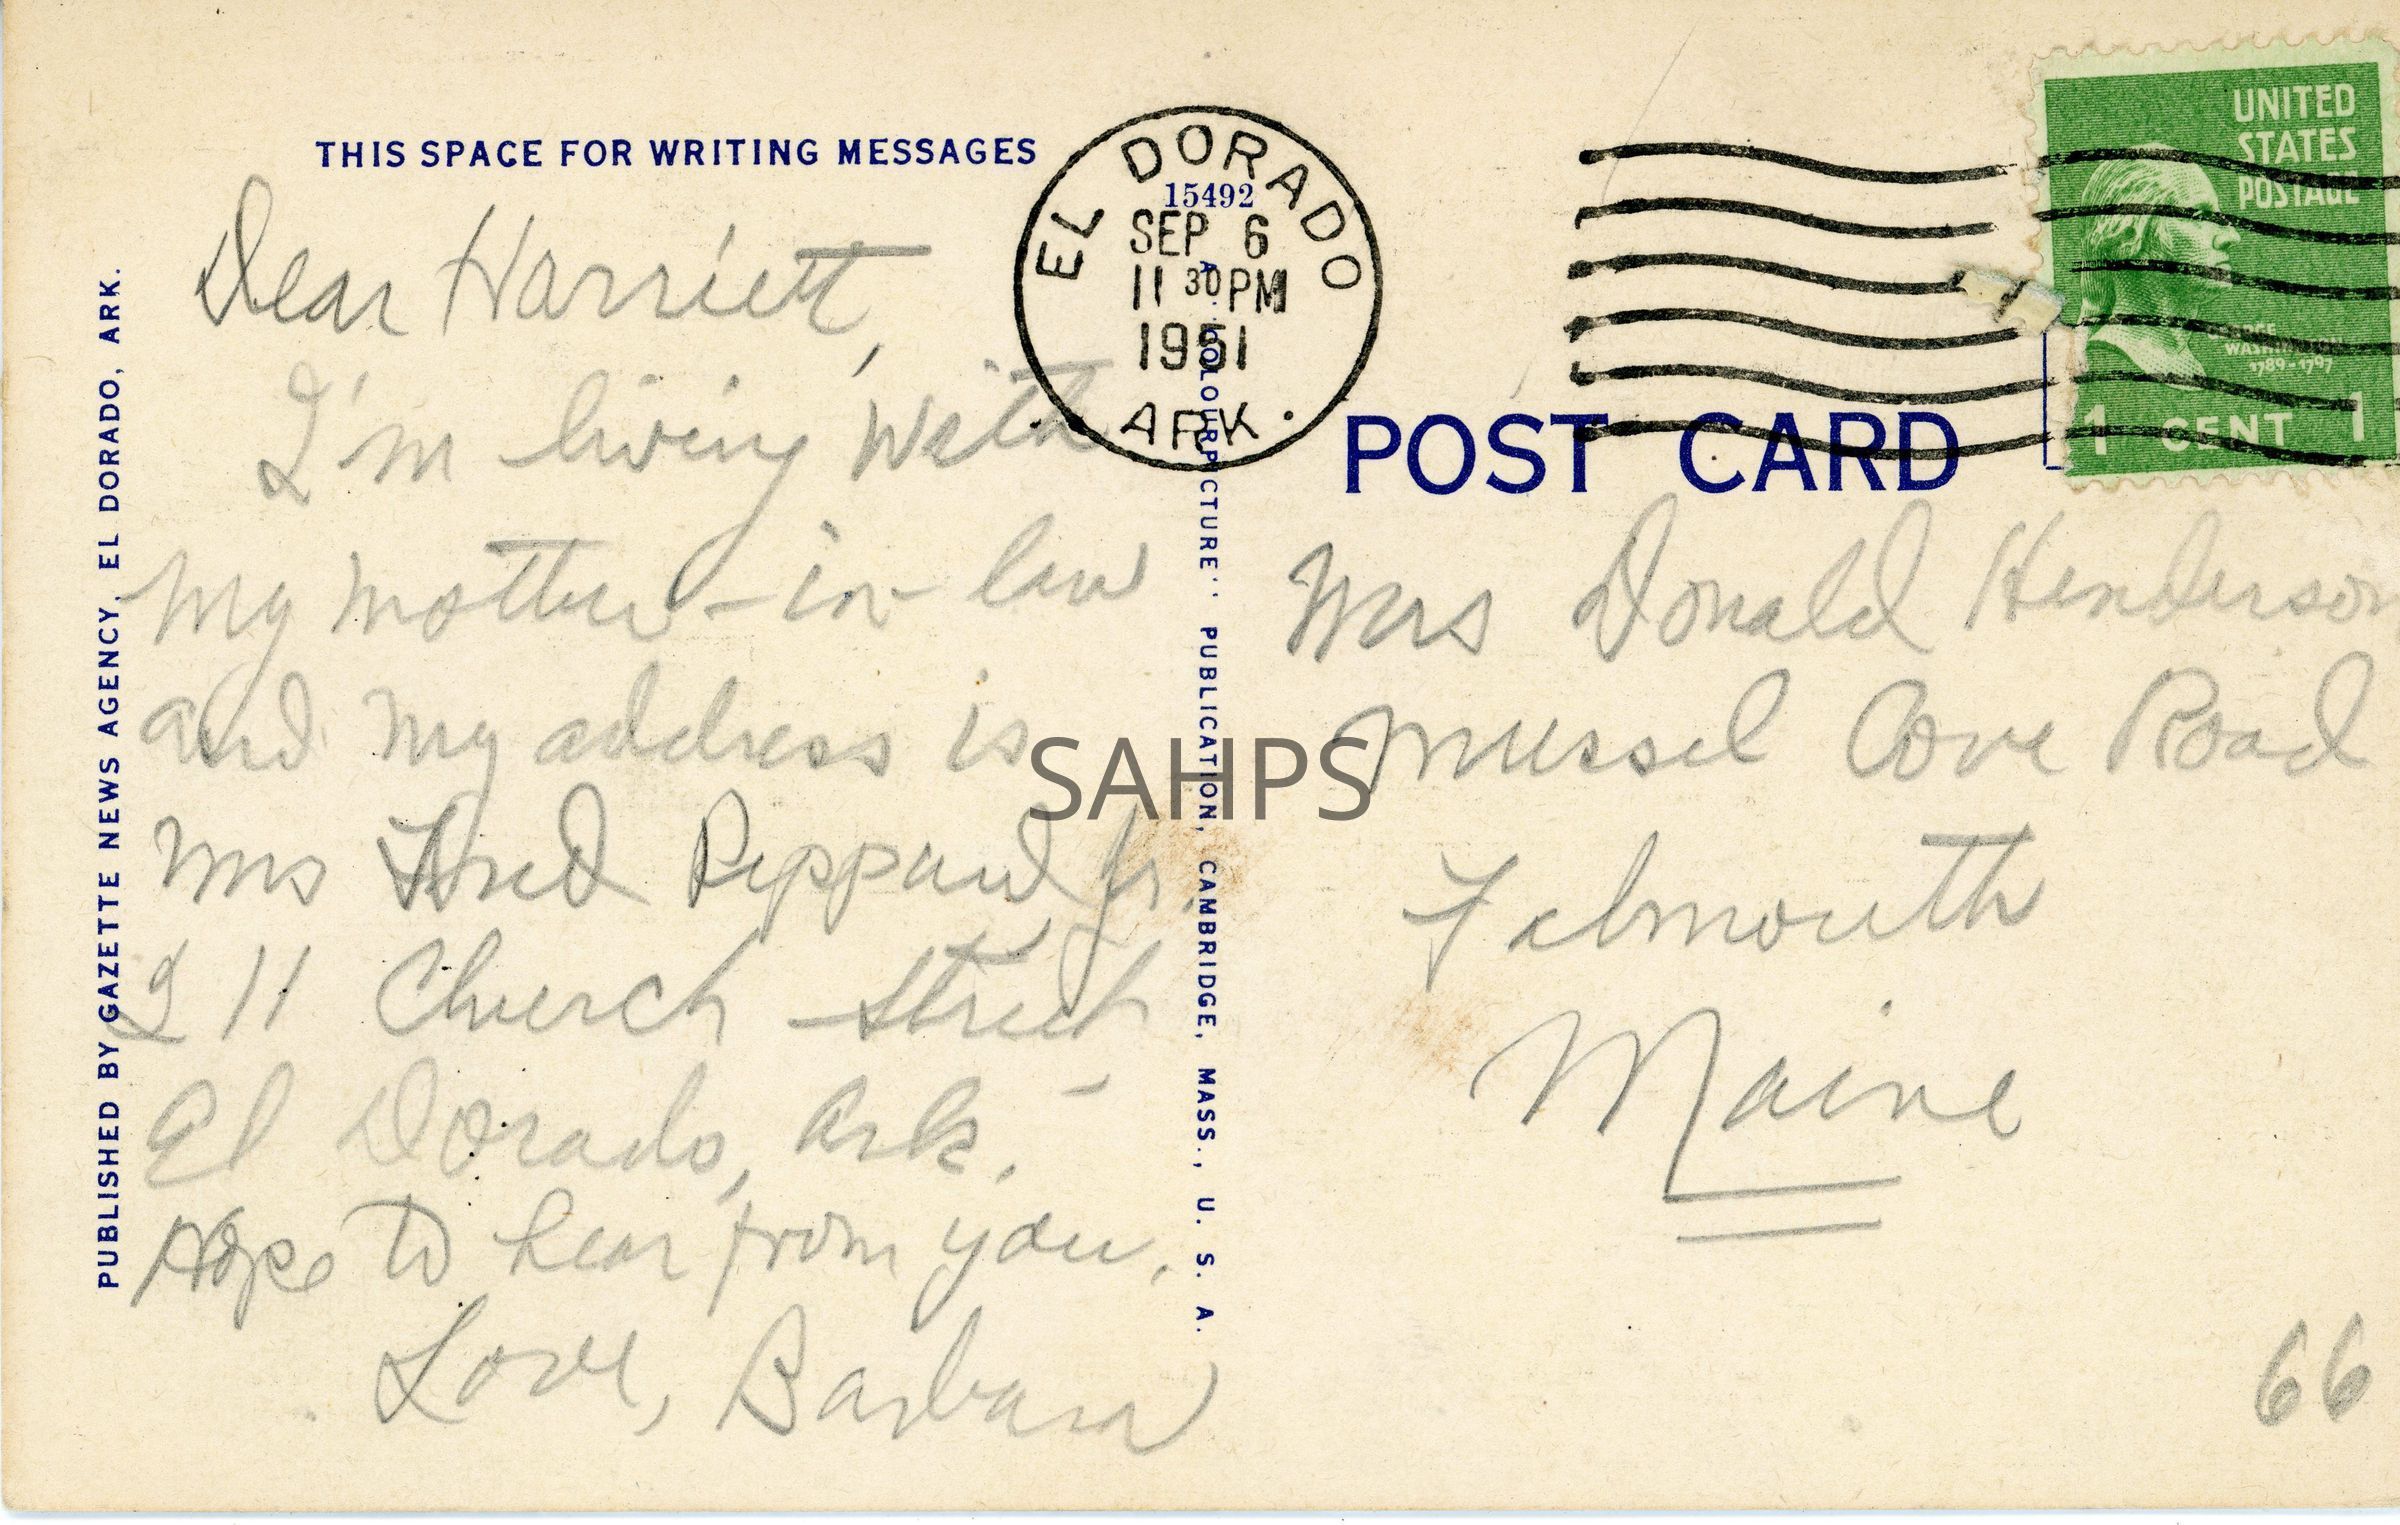 THIS SPACE FOR WRITING MESSAGES
Dear Harriett,
I'm living with
my mother-in-law
and my address is
Mrs Fred Peppard Jr.
211 Church Street
El Dorado, Ark.
Hope to hear from you.
Love, Barbara
PUBLISHED BY GAZETTE NEWS AGENCY, EL DORADO, ARK.
15492
EL DORADO
SEP 6
11 30 PM
1951
ARK.
A "COLOURPICTURE" PUBLICATION, CAMBRIDGE, MASS., U. S. A.
UNITED
STATES
POSTAGE
GEORGE
WASHINGTON
1789-1797
1 CENT 1
POST CARD
Mrs Donald Henderson
Mussel Cove Road
Falmouth
Maine
66
SAHPS